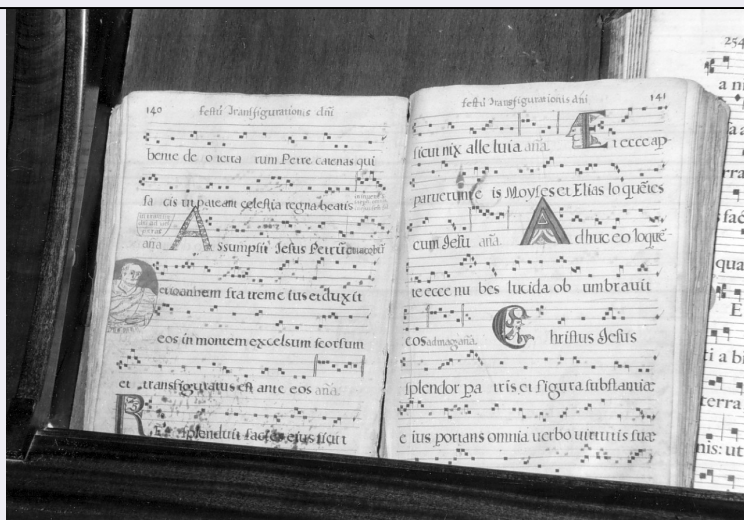 140 festū Transfigurationis dñi
beme de o terra rum Petre catenas qui
fa cis ut pateant celestia regna beatis
aña A ssumpsit Jesus Petrū et iacobū
et ioanhem fra trem e ius et duxit
eos in montem excelsum seorsum
et transfiguratus est ante eos aña.
R E splenduit facies ejus sicut
festū Transfigurationis dñi 141
sicut nix alle luia aña. E t ecce ap
paruerunt e is Moyses et Elias loquētes
cum Jesu aña. A dhuc eo loquē
te ecce nu bes lucida ob umbrauit
eos ad magaña. C hristus Jesus
splendor pa tris et figura substantiæ
e ius portans omnia uerbo uirtutis suæ
254
a
E
ti a b
terra
nis: ut